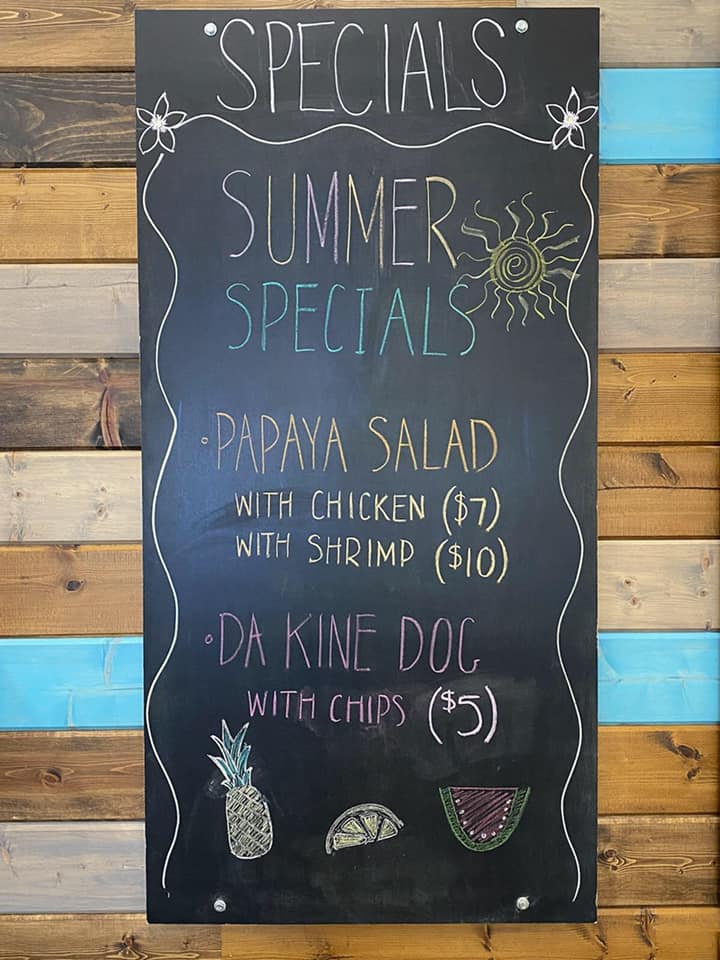 SPECIALS
SUMMER
SPECIALS
• PAPAYA SALAD
WITH CHICKEN ($7)
WITH SHRIMP ($10)
• DA KINE DOG
WITH CHIPS ($5)